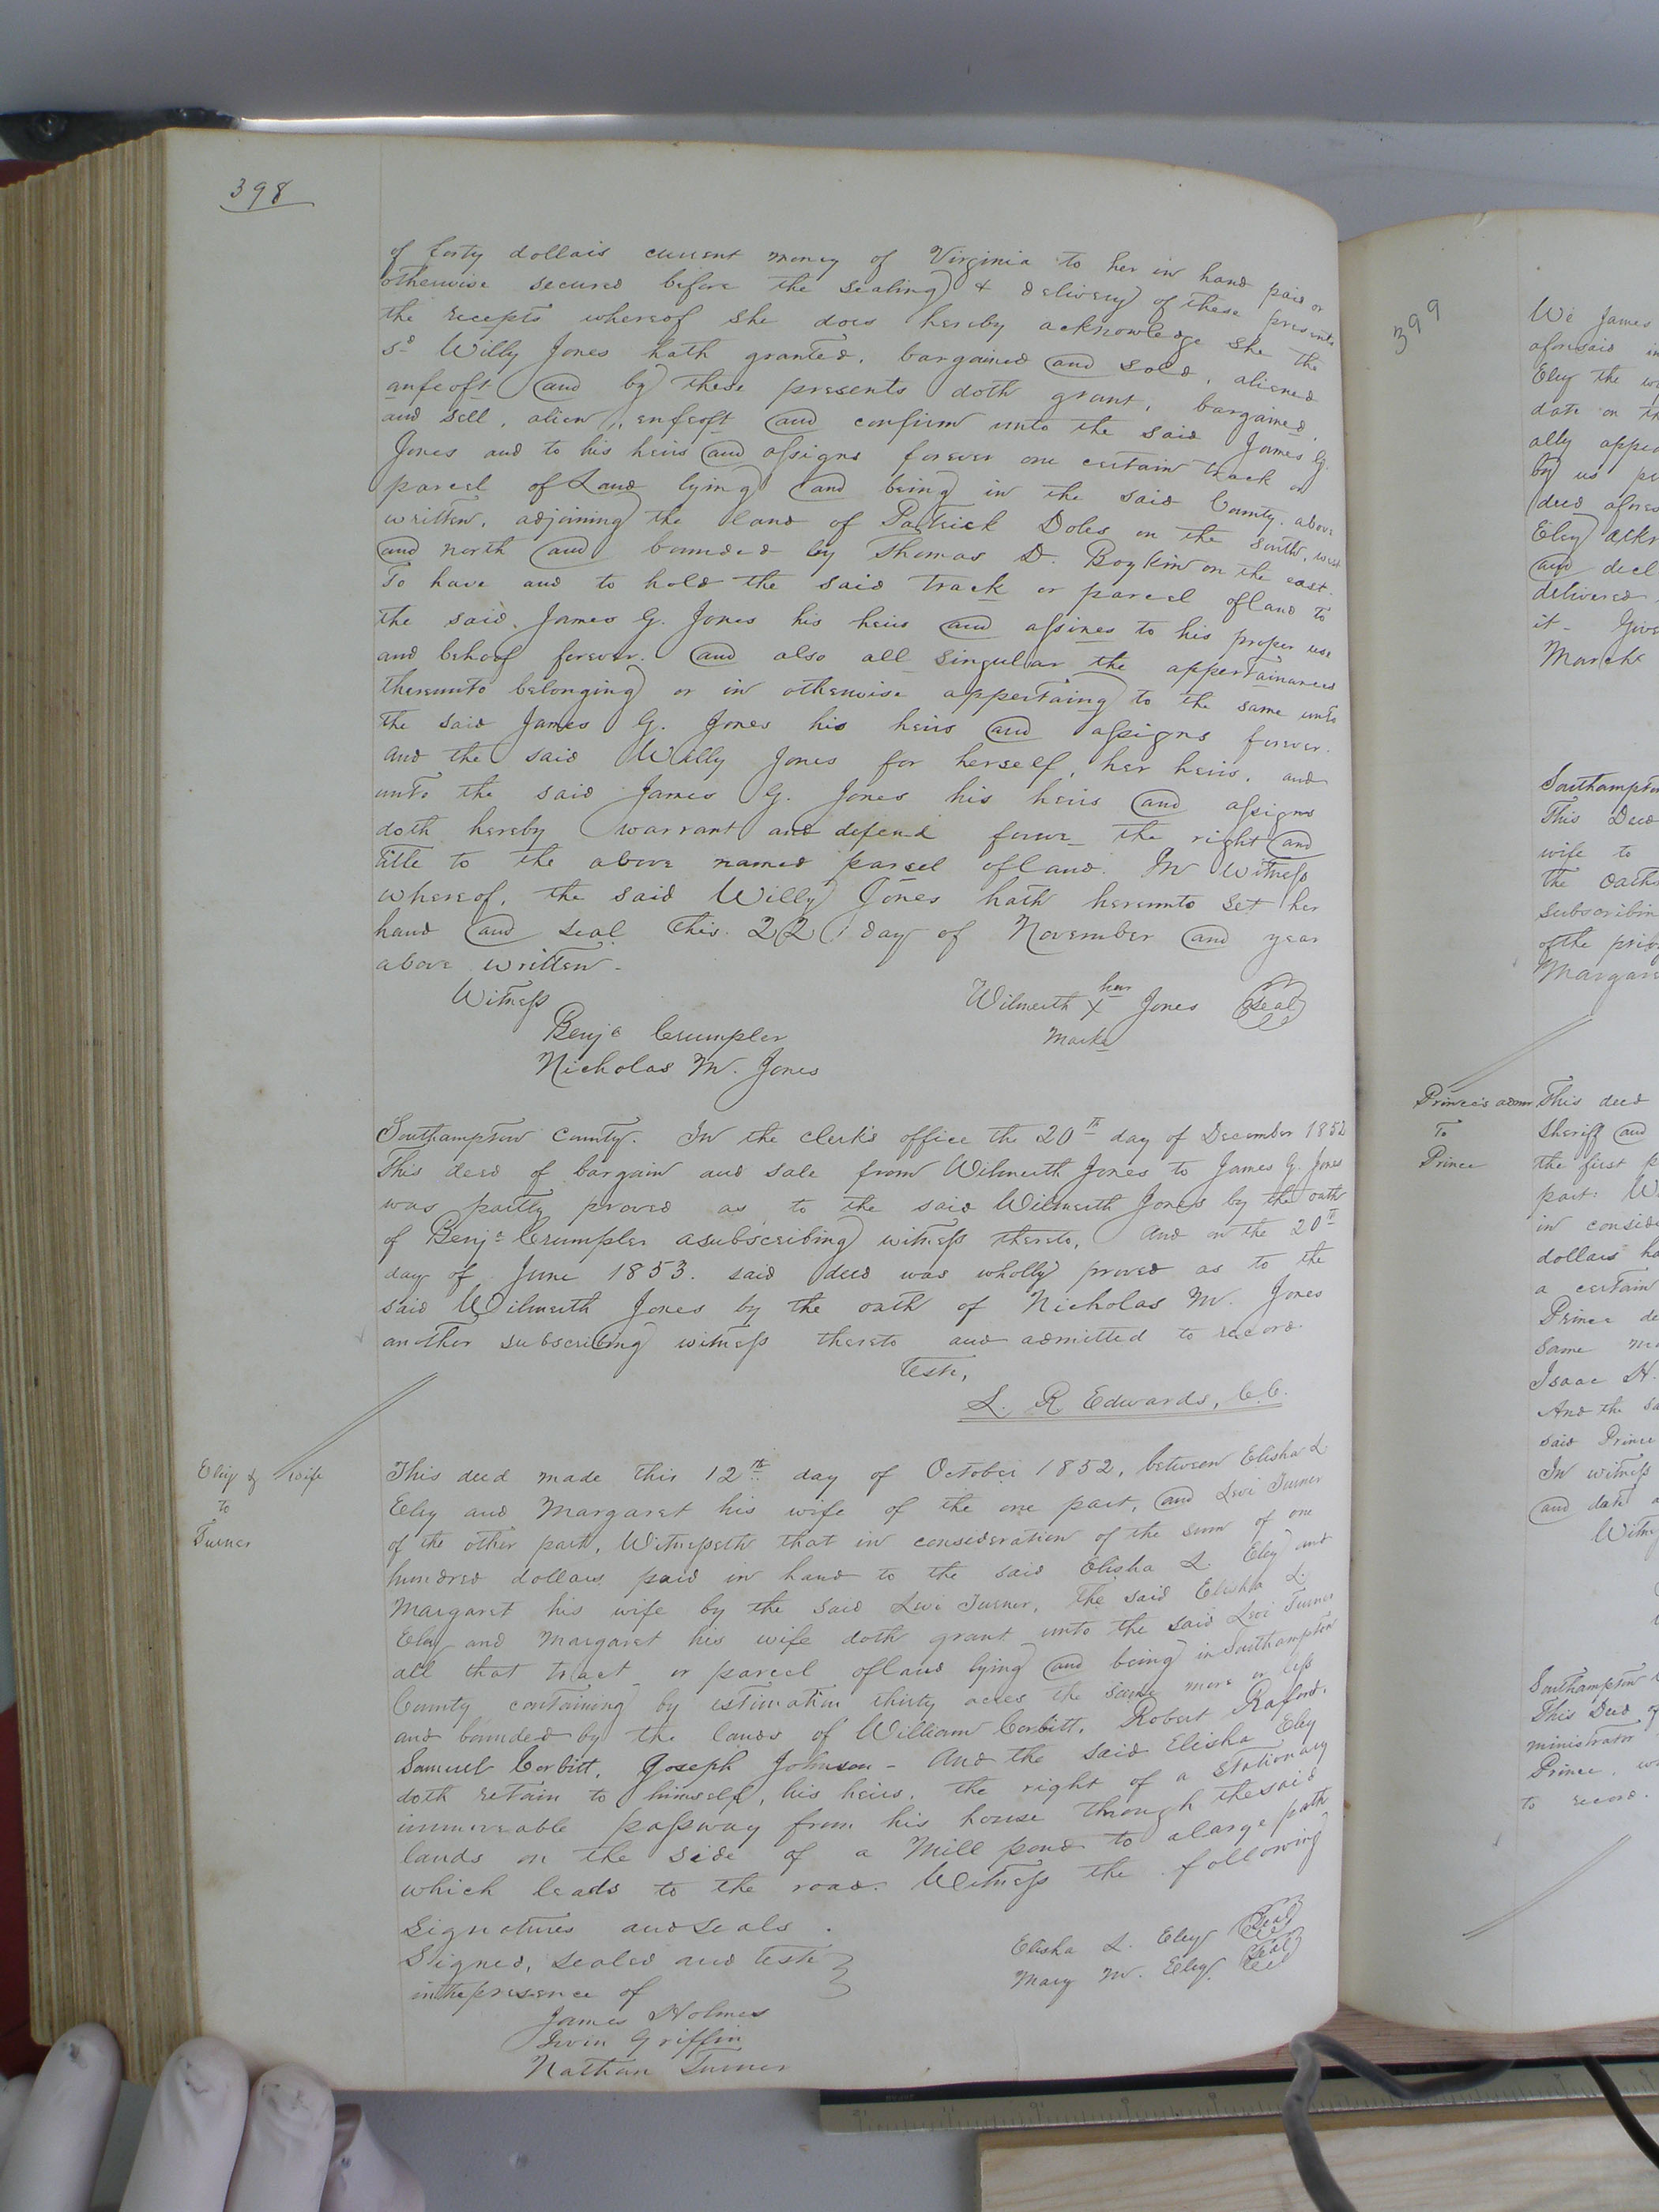 398
of forty dollars current money of Virginia to her in hand paid or
otherwise secured before the sealing & delivery of these presents
the recepts whereof she does hereby acknowledge she the
sd Willy Jones hath granted, bargained and sold, aliened
anfeoft and by these presents doth grant, bargained,
and sell, alien, enfeoft and confirm unto the said James G.
Jones and to his heirs and assigns forever one certain track or
parcel of Land lying and being in the said County above
written, adjoining the land of Patrick Doles on the south, west
and north and bounded by Thomas D. Boykin on the east.
To have and to hold the said track or parcel of land to
the said James G. Jones his heirs and assines to his proper use
and behoof forever. and also all singular the appertainances
thereunto belonging or in otherwise appertaing to the same unto
the said James G. Jones his heirs and assigns forever.
And the said Willy Jones for herself, her heirs, and
unto the said James G. Jones his heirs and assigns
doth hereby warrant and defend forever the right and
title to the above named parcel of land. In witness
whereof, the said Willy Jones hath hereunto set her
hand and seal this 22 day of November and year
above written.
Witness
Wilmuth her X Jones Seal
mark
Benja Crumpler
Nicholas M. Jones
Southampton County. In the clerk's office the 20th day of December 1852
This deed of bargain and sale from Wilmuth Jones to James G. Jones
was partly proved as to the said Wilmuth Jones by the oath
of Benja Crumpler a subscribing witness thereto, And on the 20th
day of June 1853. said deed was wholly proved as to the
said Wilmuth Jones by the oath of Nicholas M. Jones
another subscribing witness thereto and admitted to record.
Teste,
L. R Edwards, C.C.
Eley & wife
To
Turner
This deed made this 12th day of October 1852, between Elisha L
Eley and Margaret his wife of the one part, and Levi Turner
of the other part, Witnesseth that in consideration of the sum of one
hundred dollars paid in hand to the said Elisha L. Eley and
Margaret his wife by the said Levi Turner, the said Elisha L.
Eley and Margaret his wife doth grant unto the said Levi Turner
all that tract or parcel of land lying and being in Southampton
County containing by estimation thirty acres the same more or less
and bounded by the lands of William Corbitt, Robert Raford,
Samuel Corbitt, Joseph Johnson - And the said Elisha Eley
doth retain to himself, his heirs, the right of a stationary
immoveable passway from his house through the said
lands on the side of a Mill pond to a large path
which leads to the road. Witness the following
signatures and seals.
Signed, sealed and teste
in the presence of
Elisha L. Eley Seal
Mary M. Eley Seal
James Holmes
Irvin Griffin
Nathan Turner
399
We James
aforesaid in
Eley the
date on th
ally appea
by us
deed afores
Eley ackn
and decl
delivered
it - Give
March
Southampton
This Deed
wife to
the oath
subscribin
of the priv
Margare
Prince's admr
To
Prince
This deed
Sheriff and
the first p
part: W
in conside
dollars ha
a certain
Prince de
same
Isaac H.
And the sa
said Prince
In witness
and date
Witn
Southampton
This Deed of
ministrator
Prince, w
to record.